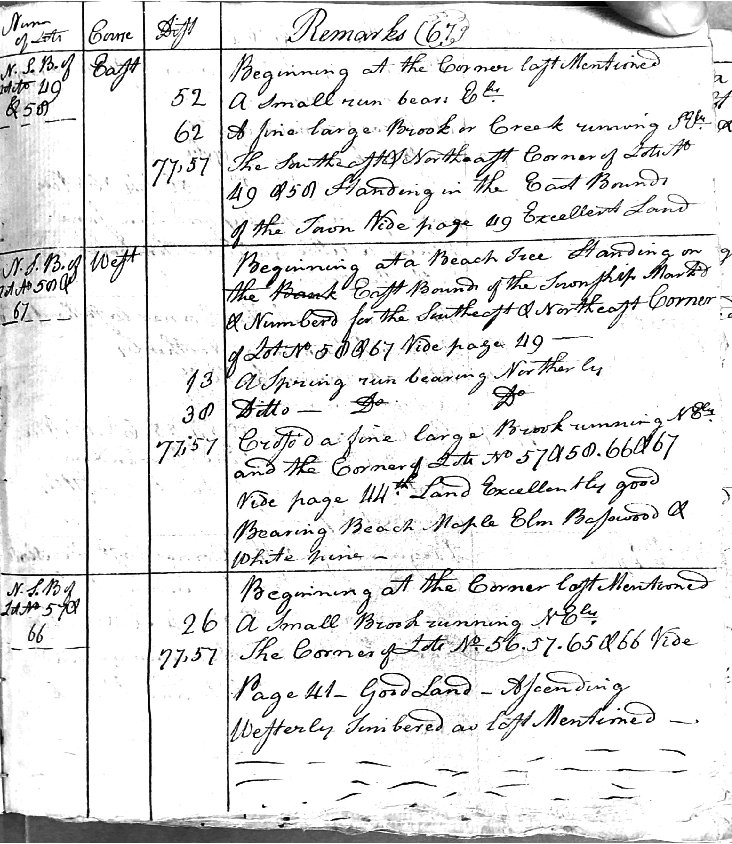 Num of Lots Corse Dist Remarks (67)
N. S. B. of East Beginning at the Corner last Mentioned
Lot No 49 52 A Small run bears Ely
& 58 62 A fine large Brook or Creek running
77,57 The Southeast & Northeast Corner of Lots No
49 & 58 Standing in the East Bounds
of the Town Vide page 49 Excellent Land
N. S. B. of West Beginning at a Beach Tree Standing on
Lot No 58 & the Bank East Bound of the Township Markd
67 & Numberd for the Southeast & Northeast Corner
of Lot No 58 & 67 Vide page 49 —
13 A Spring run bearing Northerly
38 Ditto — Do Do
77,57 Crossd a fine large Brook running NEly
and the Corner of Lots No 57 & 58. 66 & 67
Vide page 44th Land Excellently good
Bearing Beach Maple Elm Basswood &
White pine —
N. S. B of Beginning at the Corner last Mentioned
Lot No 57 & 26 A Small Brook running NEly
66 77,57 The Corner of Lots No. 56. 57. 65 & 66 Vide
Page 41 — Good Land — Ascending
Westerly Timbered as last Mentioned —